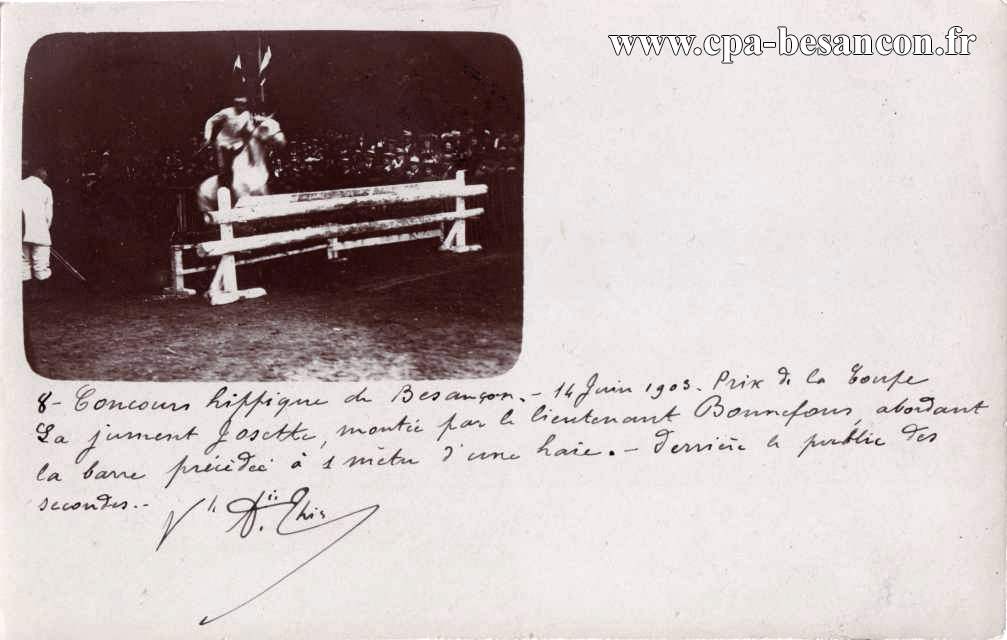 www.cpa-besancon.fr
8 - Concours hippique de Besançon. - 14 Juin 1903. Prix de la Coupe
La jument Josette, montée par le lieutenant Bonnefous, abordant
la barre précédée à 1 mètre d'une haie. - Derrière le public des
secondes. -